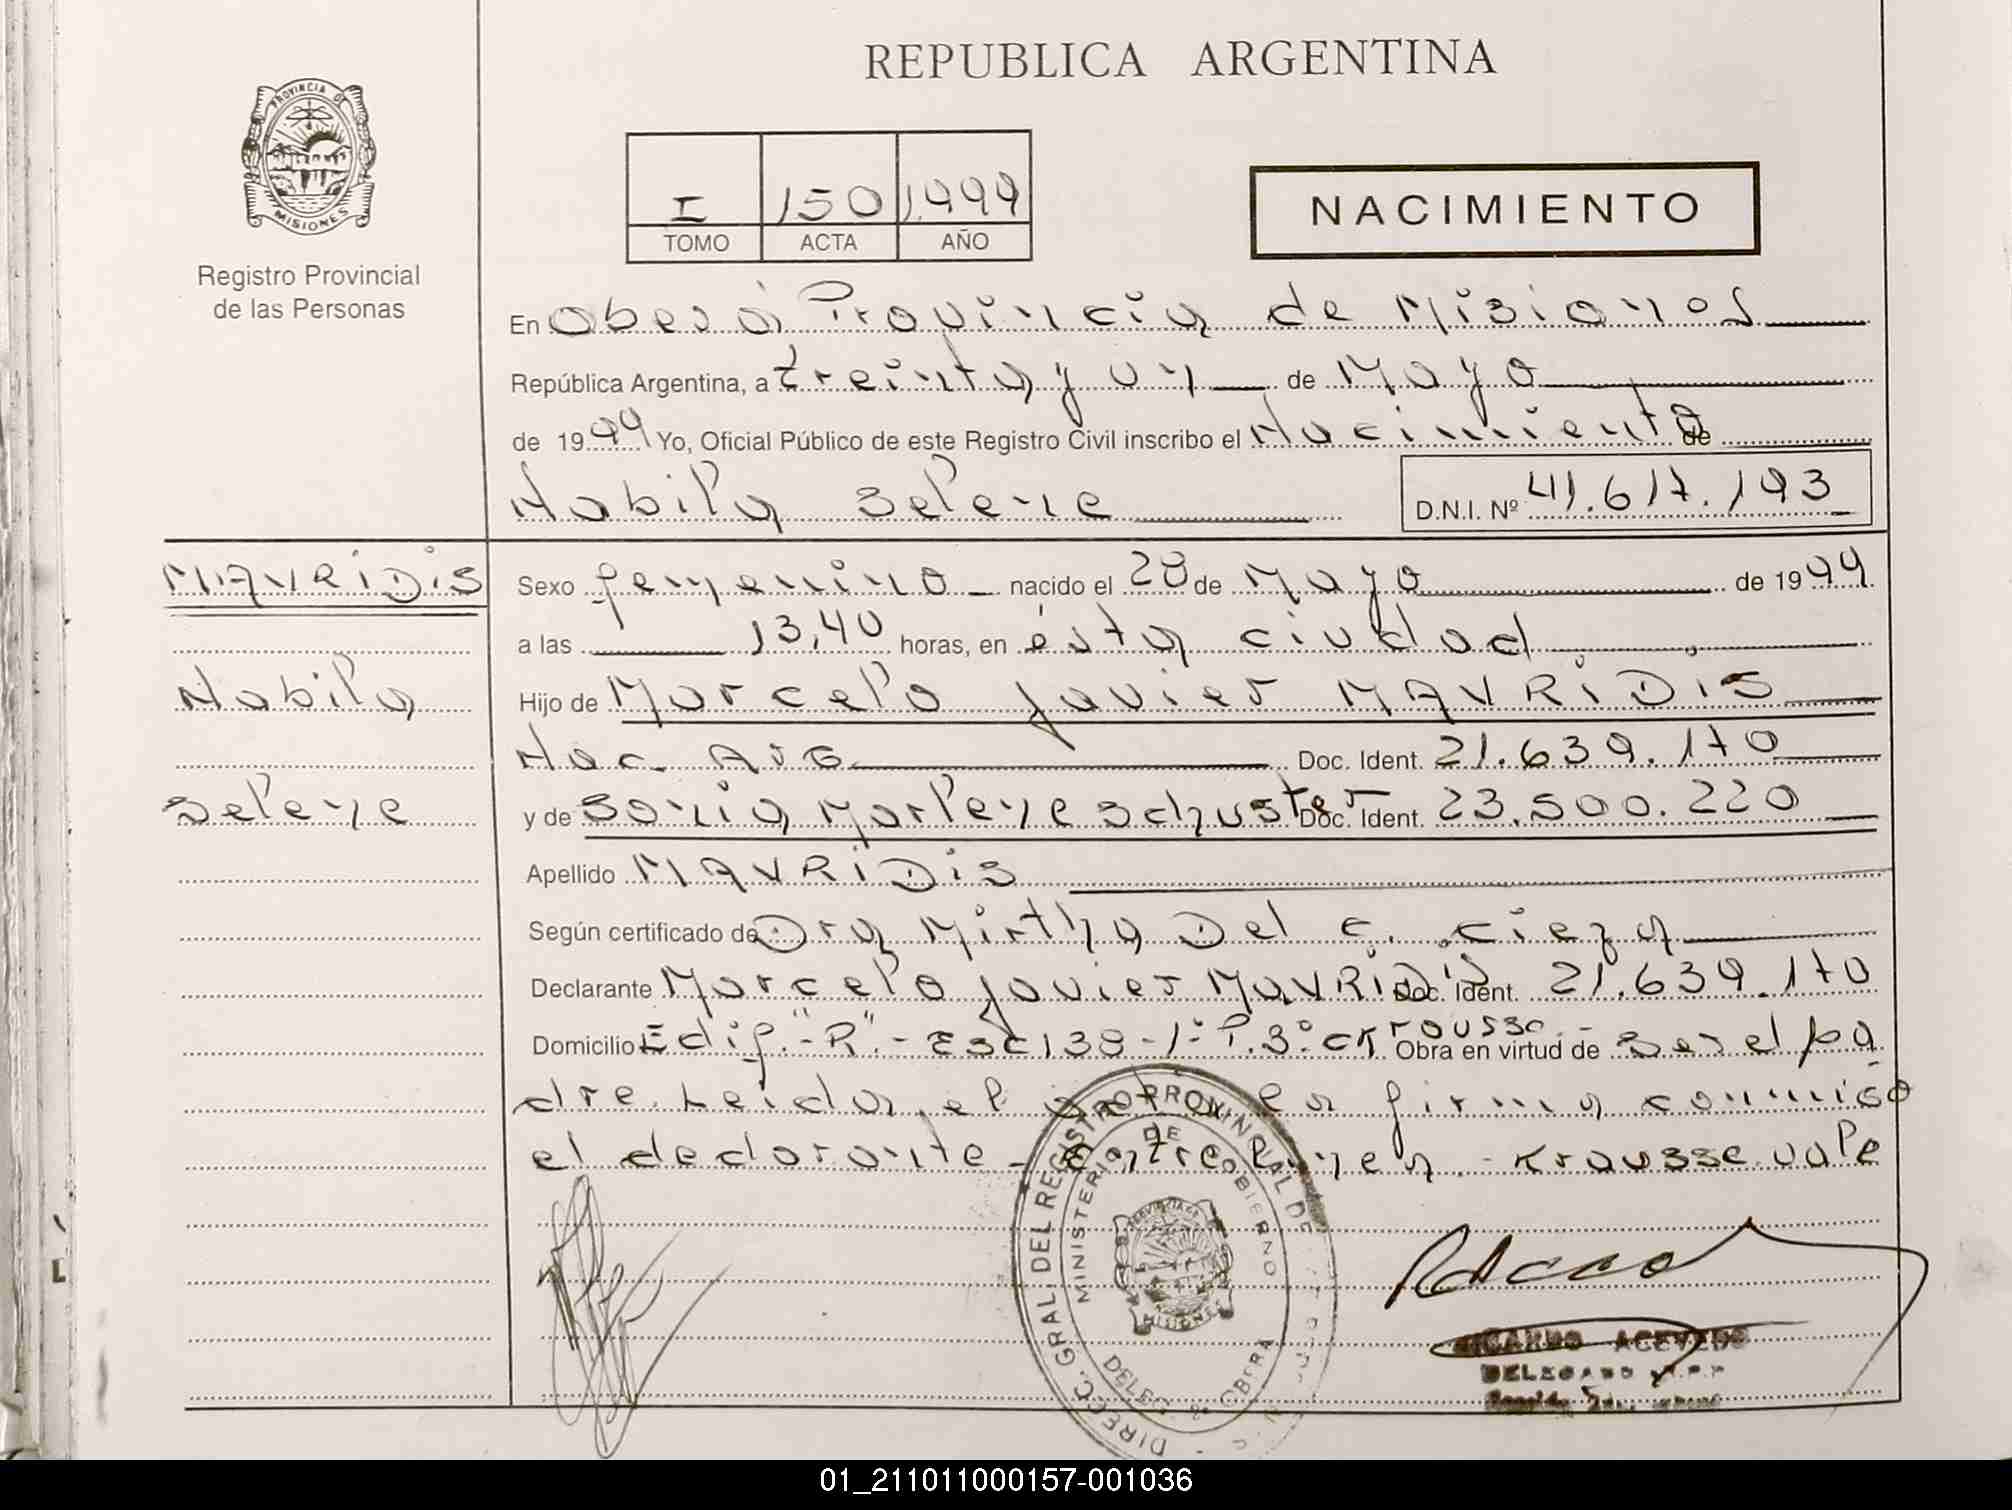 REPUBLICA ARGENTINA
PROVINCIA DE
MISIONES
Registro Provincial
de las Personas
I 150 1999
TOMO ACTA AÑO
NACIMIENTO
En Oberá Provincia de Misiones
República Argentina, a treinta y un de Mayo
de 1999 Yo, Oficial Público de este Registro Civil inscribo el Nacimiento de
Nabila Selene D.N.I. Nº 41.617.193
MAVRIDIS
Nabila
Selene
Sexo femenino nacido el 28 de Mayo de 1999
a las 13,40 horas, en ésta ciudad
Hijo de Marcelo Javier MAVRIDIS
Nac. Arg Doc. Ident. 21.639.170
y de Sonia Marlene Schuster Doc. Ident. 23.500.220
Apellido MAVRIDIS
Según certificado de Dra Mirtha Del C. Cieza
Declarante Marcelo Javier MAVRIDIS Doc. Ident. 21.639.170
Domicilio Edif. "R" - Esc 138 - 1º P. 3º CK rousse - Obra en virtud de ser el pa
dre. Leida el acta la firma conmigo
el declarante - Entrelinea - Krausse vale
DIRECC. GRAL. DEL REGISTRO PROVINCIAL DE
MINISTERIO DE GOBIERNO
MISIONES
OBERA
RICARDO ACEVEDO
DELEGADO R.P.P
01_211011000157-001036